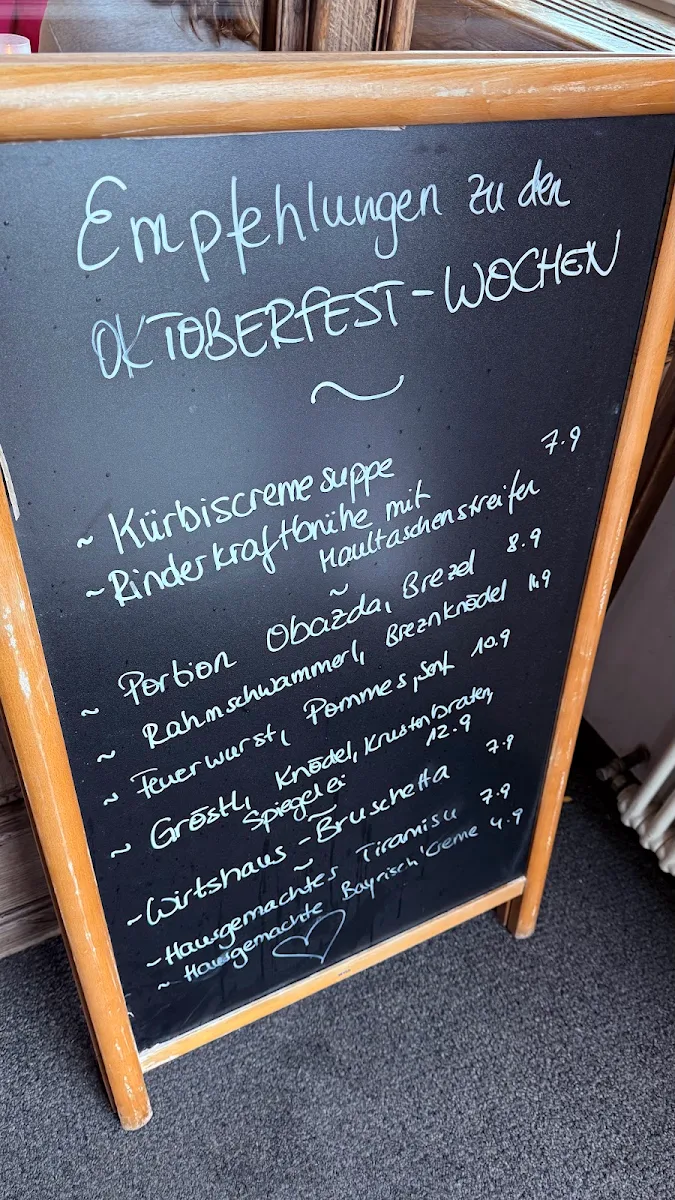 Empfehlungen zu den
OKTOBERFEST-WOCHEN
~
~ Kürbiscremesuppe 7.9
~ Rinderkraftbrühe mit
Maultaschenstreifen
~
~ Portion Obazda, Brezel 8.9
~ Rahmschwammerl, Breznknödel 11.9
~ Feuerwurst, Pommes, Senf 10.9
~ Gröstl, Knödel, Krustenbraten,
Spiegelei 12.9
~
~ Wirtshaus-Bruschetta 7.9
~
~ Hausgemachtes Tiramisu 7.9
~ Hausgemachte Bayrisch' Creme 4.9